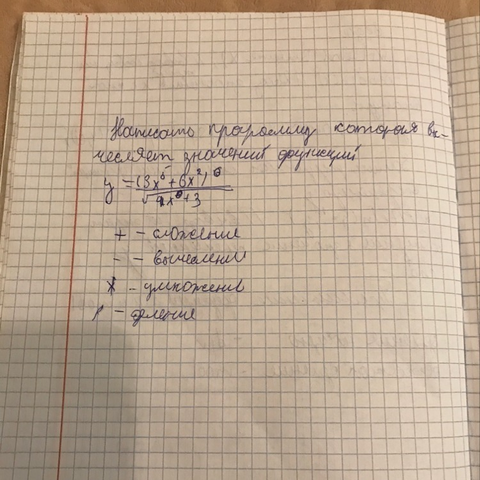 Написать программу которая вы-
чесляет значений функций
y = (3x⁵+6x²)⁶ / √4x⁸+3
+ - сложение
- - вычеслений
* - умножений
/ - деление